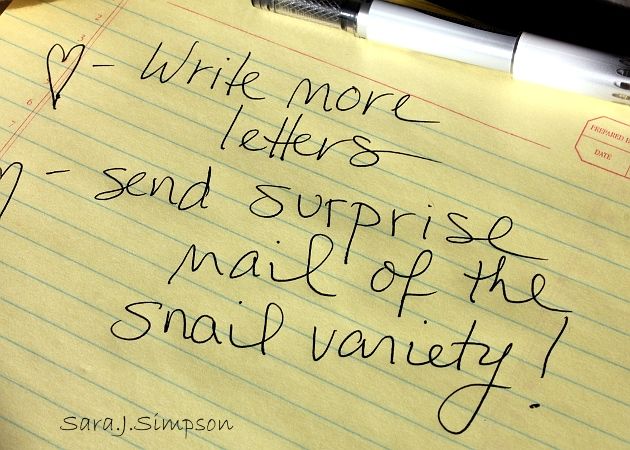 - Write more
letters
- send surprise
mail of the
snail variety!
PREPARED
DATE
2
3
6
Sara.J.Simpson